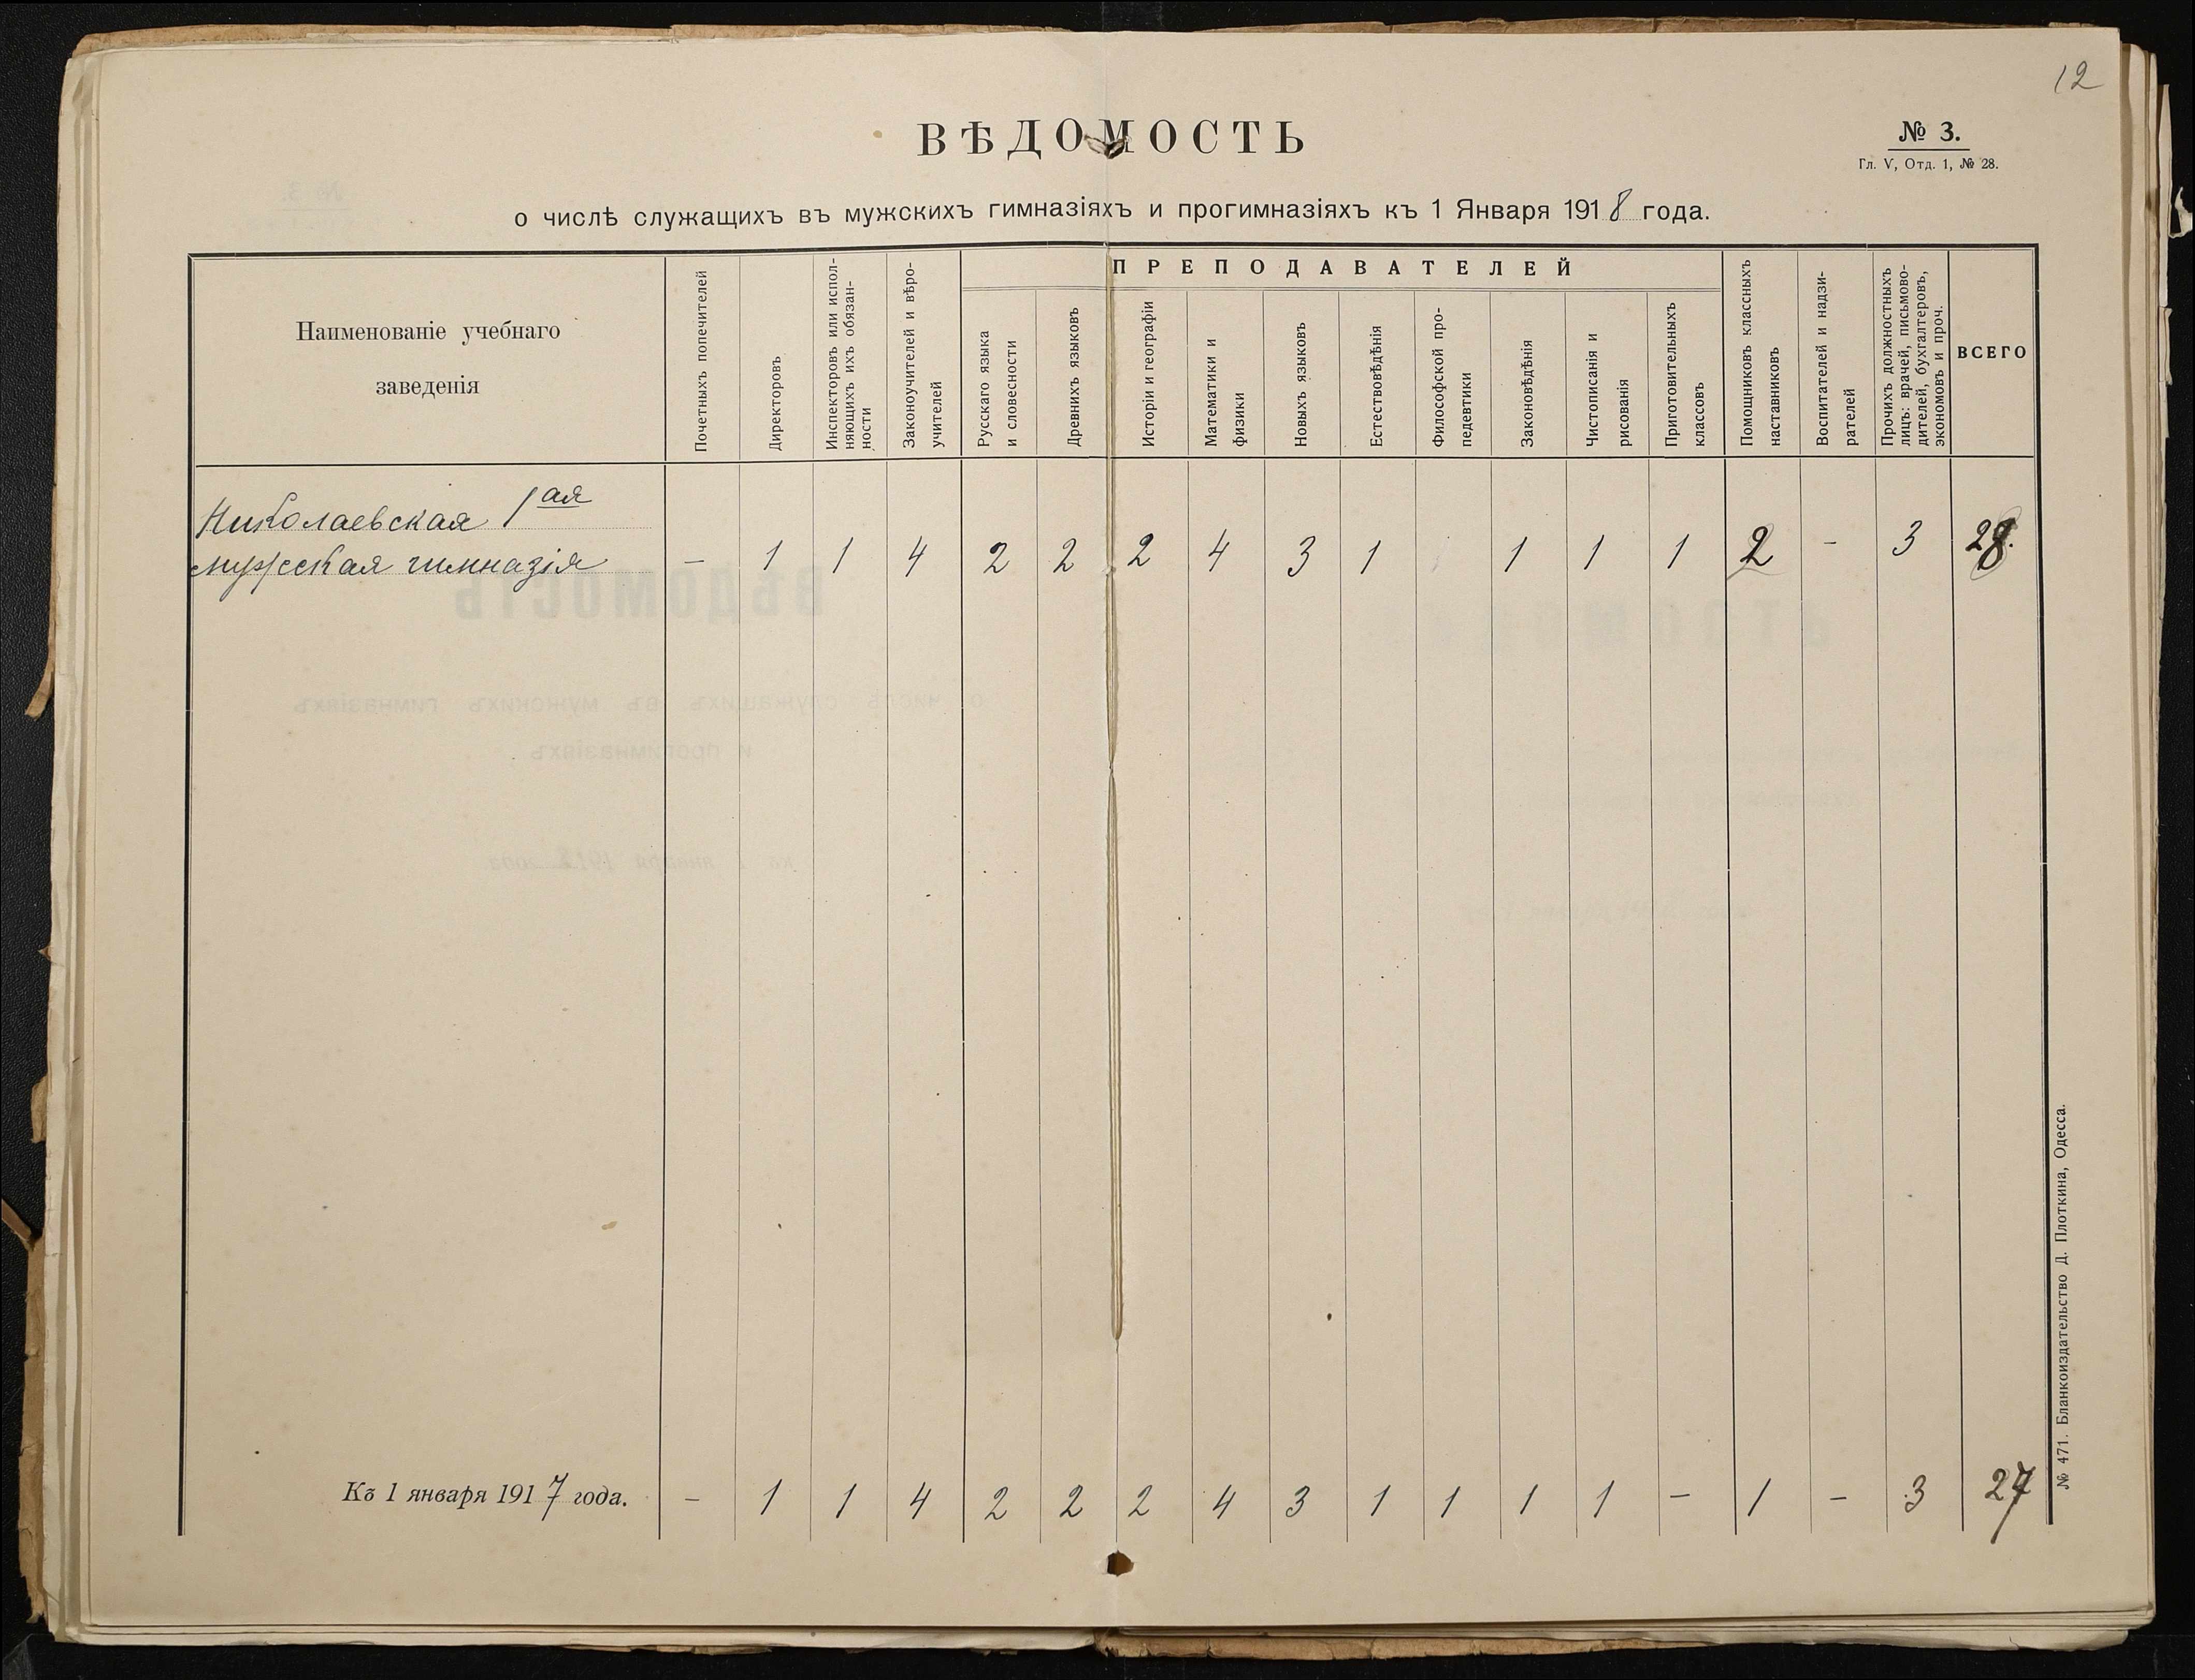 12
ВѢДОМОСТЬ
№ 3.
Гл. V, Отд. 1, № 28.
о числѣ служащихъ въ мужскихъ гимназіяхъ и прогимназіяхъ къ 1 Января 1918 года.
Наименованіе учебнаго
заведенія
Почетныхъ попечителей
Директоровъ
Инспекторовъ или испол-
няющихъ ихъ обязан-
ности
Законоучителей и вѣро-
учителей
ПРЕПОДАВАТЕЛЕЙ
Русскаго языка
и словесности
Древнихъ языковъ
Исторіи и географіи
Математики и
физики
Новыхъ языковъ
Естествовѣдѣнія
Философской про-
педевтики
Законовѣдѣнія
Чистописанія и
рисованія
Приготовительныхъ
классовъ
Помощниковъ классныхъ
наставниковъ
Воспитателей и надзи-
рателей
Прочихъ должностныхъ
лицъ: врачей, письмово-
дителей, бухгалтеровъ,
экономовъ и проч.
ВСЕГО
Николаевская 1ая
мужсская гимназія – 1 1 4 2 2 2 4 3 1 1 1 1 2 – 3 28.
Къ 1 января 1917 года. – 1 1 4 2 2 2 4 3 1 1 1 1 – 1 – 3 27
№ 471. Бланкоиздательство Д. Плоткина, Одесса.